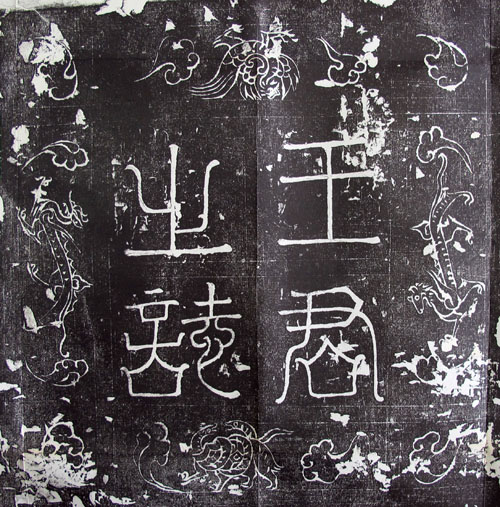 王君
之誌